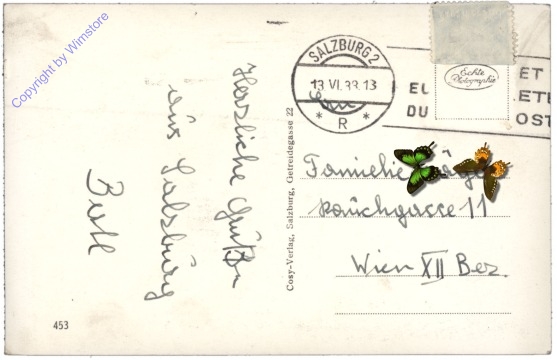 Copyright by Wimstore
Herzliche Grüße
aus Salzburg
453
Cosy-Verlag, Salzburg, Getreidegasse 22
SALZBURG 2
13 VI. 13
* R *
Echte
Photographie
ET
EU ETE
DU OST
Familie
Rauchgasse 11
Wien XII Bez.